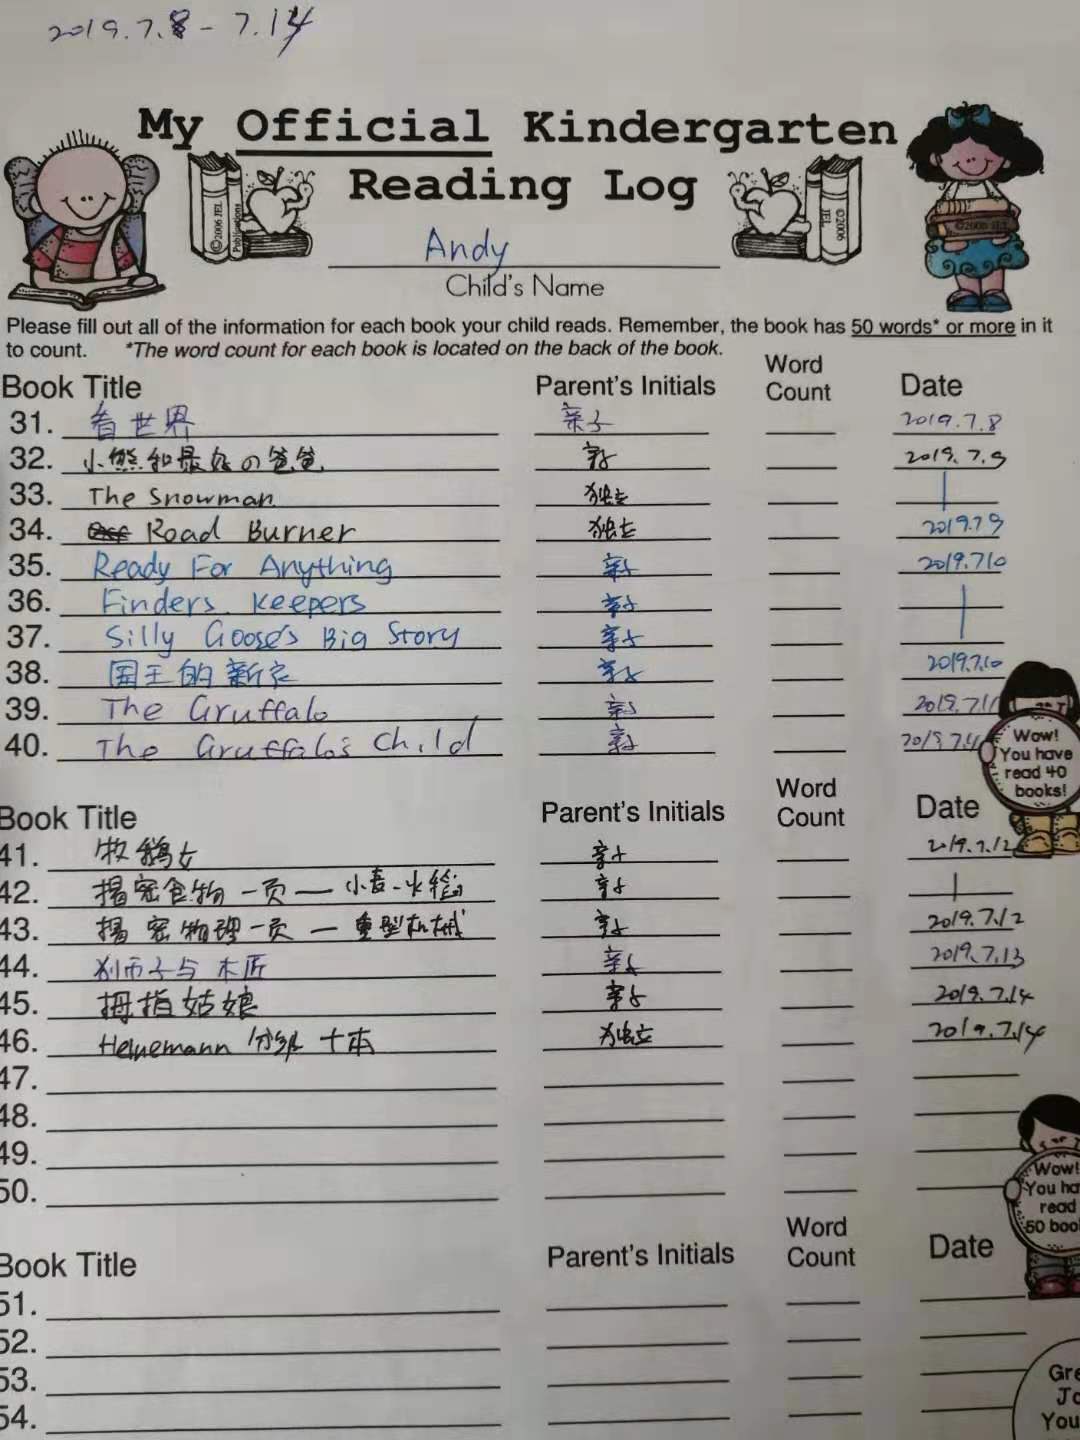 2019.7.8 - 7.14
My Official Kindergarten
Reading Log
©2006 JEL
Publications
©2006
JEL
©2006 JEL
Andy
Child's Name
Please fill out all of the information for each book your child reads. Remember, the book has 50 words* or more in it
to count. *The word count for each book is located on the back of the book.
Book Title Parent's Initials Word Count Date
31. 看世界 亲子 2019.7.8
32. 小熊和最好の爸爸 亲子 2019.7.9
33. The Snowman 独立
34. Road Burner 独立 2019.7.9
35. Ready For Anything 亲子 2019.7.10
36. Finders Keepers 亲子
37. Silly Goose's Big Story 亲子
38. 国王的新衣 亲子 2019.7.10
39. The Gruffalo 亲子 2019.7.11
40. The Gruffalo's Child 亲子
Wow!
You have
read 40
books!
Book Title Parent's Initials Word Count Date
41. 牧鹅女 亲子 2019.7.12
42. 揭密食物一页 — 小麦 亲子
43. 揭密物理一页 — 重型机械 亲子 2019.7.12
44. 狮子与木匠 亲子 2019.7.13
45. 拇指姑娘 亲子 2019.7.14
46. Heinemann 分级 十本 独立 2019.7.14
47.
48.
49.
50.
Wow!
You ha
read
50 boo
Book Title Parent's Initials Word Count Date
51.
52.
53.
54.
Gre
Jo
You